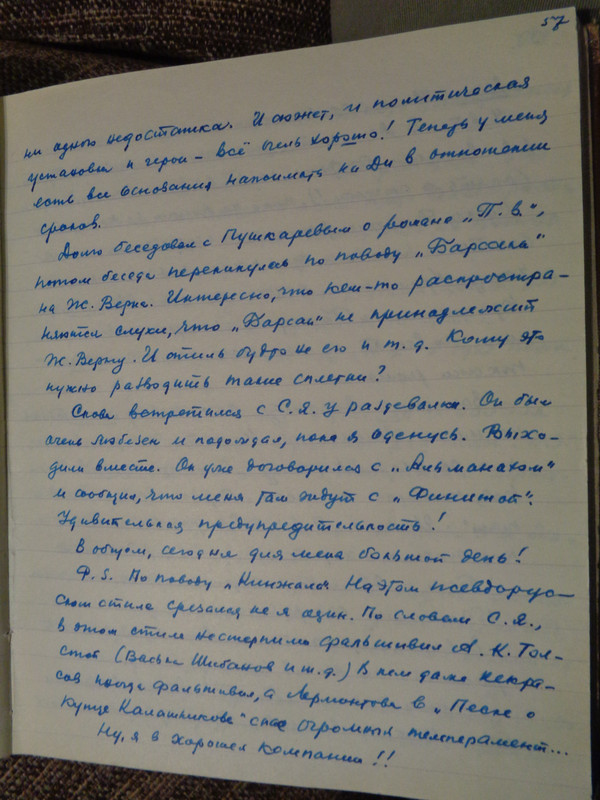 57
ни одного недостатка. И сюжет, и политическая
установка и герои – всё очень хорошо! Теперь у меня
есть все основания нажимать на Ди в отношении
сроков.
Долго беседовал с Пушкаревым о романе „П. в.",
потом беседа перекинулась по поводу „Барсака"
на Ж. Верна. Интересно, что кем-то распростра-
няются слухи, что „Барсак" не принадлежит
Ж. Верну. И стиль будто не его и т. д. Кому это
нужно разводить такие сплетни?
Снова встретился с С.Я. у раздевалки. Он был
очень любезен и подождал, пока я оденусь. Выхо-
дили вместе. Он уже договорился с „Альманахом"
и сообщил, что меня там ждут с „Финистом".
Удивительная предупредительность!
В общем, сегодня для меня большой день!
P.S. По поводу „Кинжала". На этом псевдорус-
ском стиле срезался не я один. По словам С.Я.,
в этом стиле нестерпимо фальшивил А. К. Тол-
стой (Васька Шибанов и т. д.) В нем даже Некра-
сов иногда фальшивил, а Лермонтова в „Песне о
купце Калашникове" спас огромный темперамент...
Ну, я в хорошей компании!!